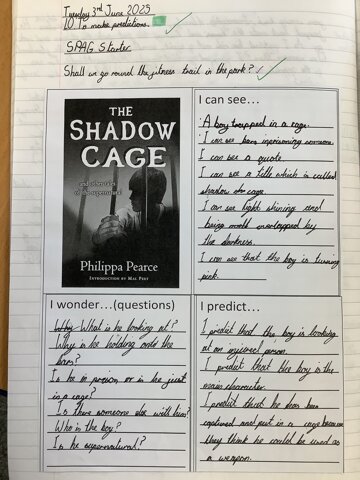 Tuesday 3rd June 2025
LO To make predictions.
SPAG Starter
Shall we go round the fitness trail in the park?
THE
SHADOW
CAGE
and other tales
of the supernatural
Philippa Pearce
INTRODUCTION BY MAX PORT
I can see...
A boy trapped in a cage.
I can see bars imprisoning someone.
I can see a quote.
I can see a title which is called
shadow cage.
I can see light shining and
being overlapped by
the darkness.
I can see that the boy is turning
pink.
I wonder...(questions)
What is he looking at?
Why is he holding onto the
bars?
Is he in prison or is he just
in a cage?
Is there someone else with him?
Who is the boy?
Is he supernatural?
I predict...
I predict that the boy is looking
at an injured person.
I predict that the boy is the
main character.
I predict that he has been
captured and put in a cage because
they think he could be used as
a weapon.